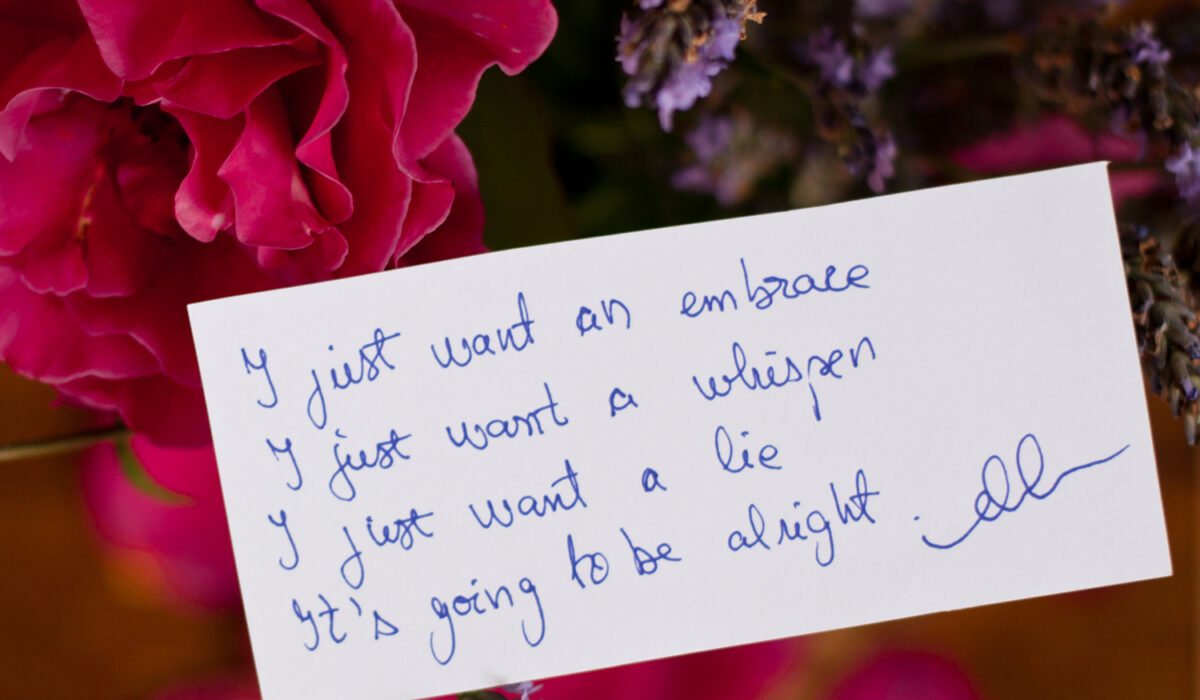 I just want an embrace
I just want a whisper
I just want a lie
It's going to be alright.